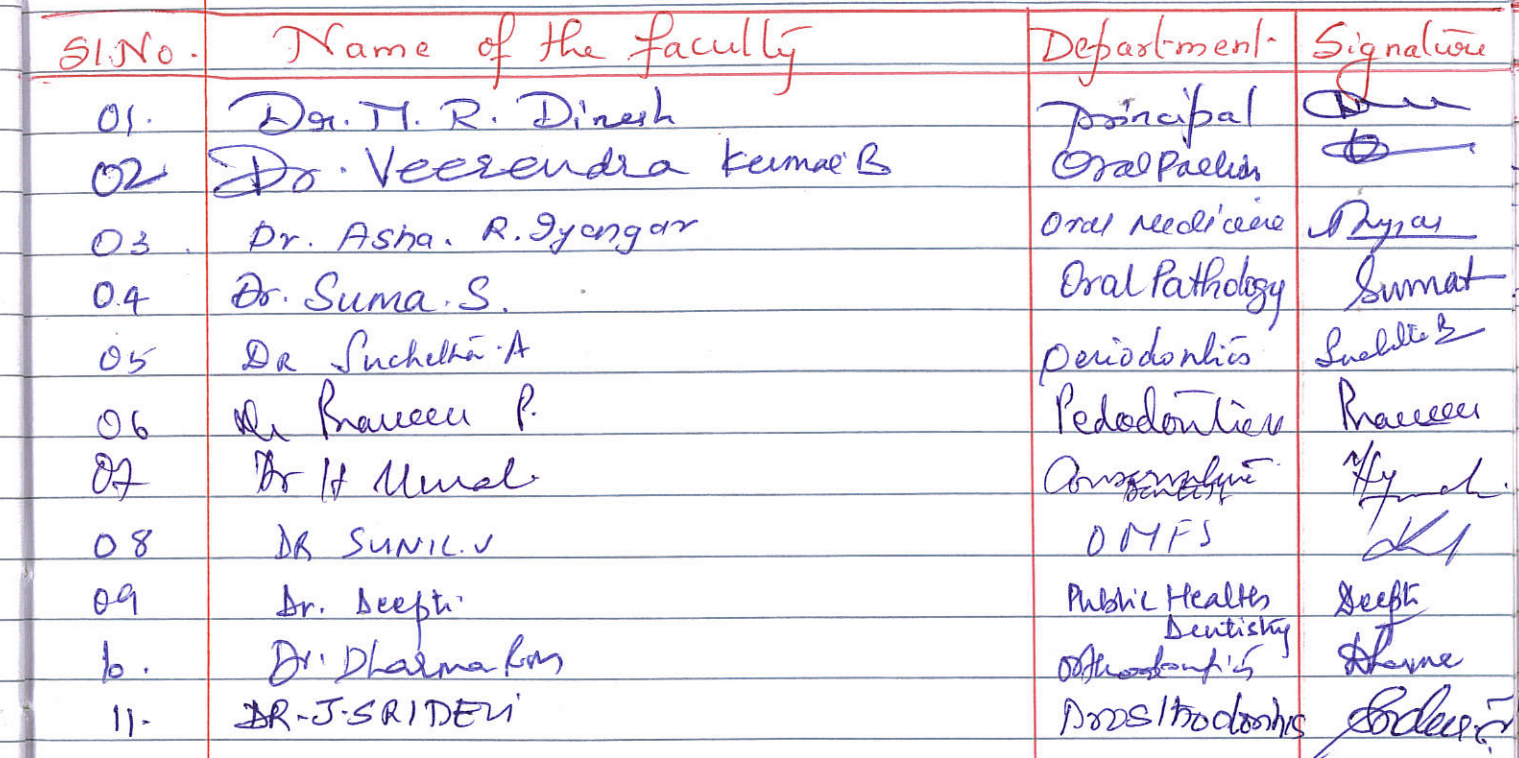 Sl.No. Name of the faculty Department Signature
01. Dr. M. R. Dinesh Principal
02 Dr. Veerendra Kumar B Oral
03. Dr. Asha. R. Iyengar Oral Medicine
04 Dr. Suma. S. Oral Pathology Suma
05 DR Suchetha. A Periodontics
06 Dr Praveen P. Pedodontics Praveen
07 Dr H Murali Conservative
Dentistry
08 DR SUNIL.V OMFS
09 Dr. Deepti Public Health Deepti
Dentistry
10. Dr. Dharma Orthodontics
11. DR. J. SRIDEVI Prosthodontics